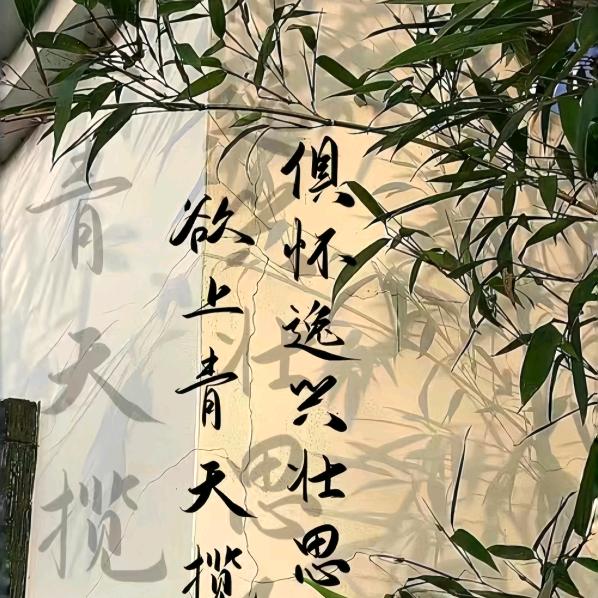 俱怀逸兴壮思
欲上青天揽
壮思
青天揽